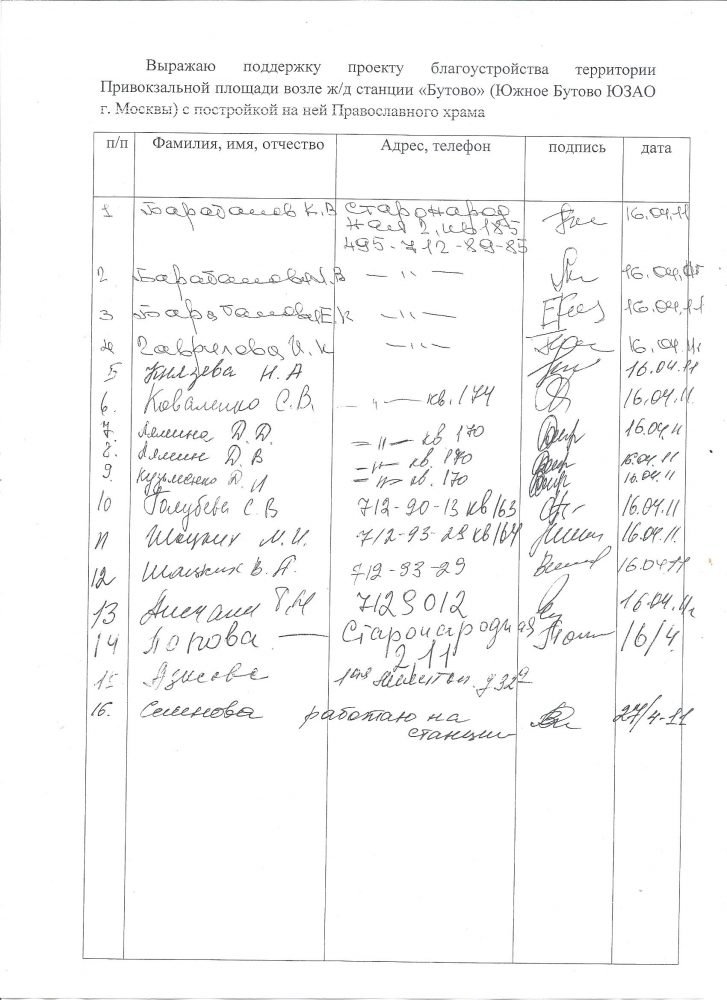 Выражаю поддержку проекту благоустройства территории
Привокзальной площади возле ж/д станции «Бутово» (Южное Бутово ЮЗАО
г. Москвы) с постройкой на ней Православного храма
п/п Фамилия, имя, отчество Адрес, телефон подпись дата
1 Барабанов К.В Старонарод 16.04.11
ная 2, кв 185
495-712-89-85
2 Барабанова В — ıı — 16.04.
3 Барабанова Е.К — ıı — 16.04.11
4 Гаврилова И. К — ıı — 16.04.11
5 Князева Н. А 16.04.11
6. Коваленко С.В. — ıı — кв. 174 16.04.11.
7. Лямина Д. Д. — ıı — кв 170 16.04.11
8. Лямин Д. В — ıı — кв. 170 16.04.11
9. Кузьменко Д. И — ıı — кв. 170 16.04.11
10 Голубева С В 712-90-13 кв 163 16.04.11
11 Шацких М. И. 712-93-29 кв 164 16.04.11.
12 Шацких В. П. 712-93-29 16.04 11
13 7129012 16.04.11г
14 Попова — Старонародная 16/4.
2, 11
15 1ая д 32а
16. Семенова работаю на 27/4-11
станции